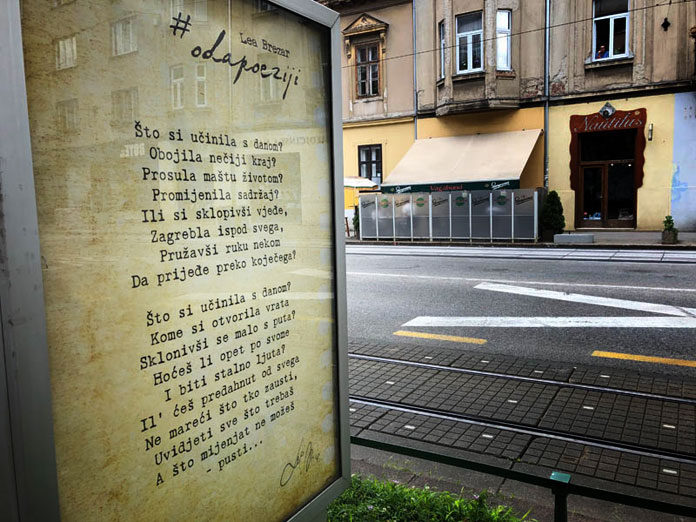 Lea Brezar
#odapoeziji
Što si učinila s danom?
Obojila nečiji kraj?
Prosula maštu životom?
Promijenila sadržaj?
Ili si sklopivši vjeđe,
Zagrebla ispod svega,
Pruživši ruku nekom
Da prijeđe preko koječega?
Što si učinila s danom?
Kome si otvorila vrata
Sklonivši se malo s puta?
Hoćeš li opet po svome
I biti stalno ljuta?
Il' ćeš predahnut od svega
Ne mareći što tko zausti,
Uvidjeti sve što trebaš
A što mijenjat ne možeš
- pusti...
Vagabund
Nautilus